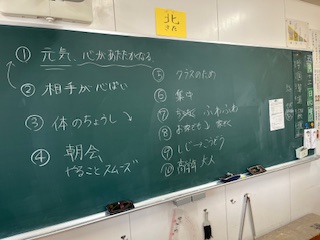 北
きた
① 元気、心があたたかくなる
② 相手が心ぱい
③ 体のちょうし↘
④ 朝会
やることスムーズ
⑤ クラスのため
⑥ 集中
⑦ ふわふわ
⑧
⑨ しじ→こうどう
⑩ 大人